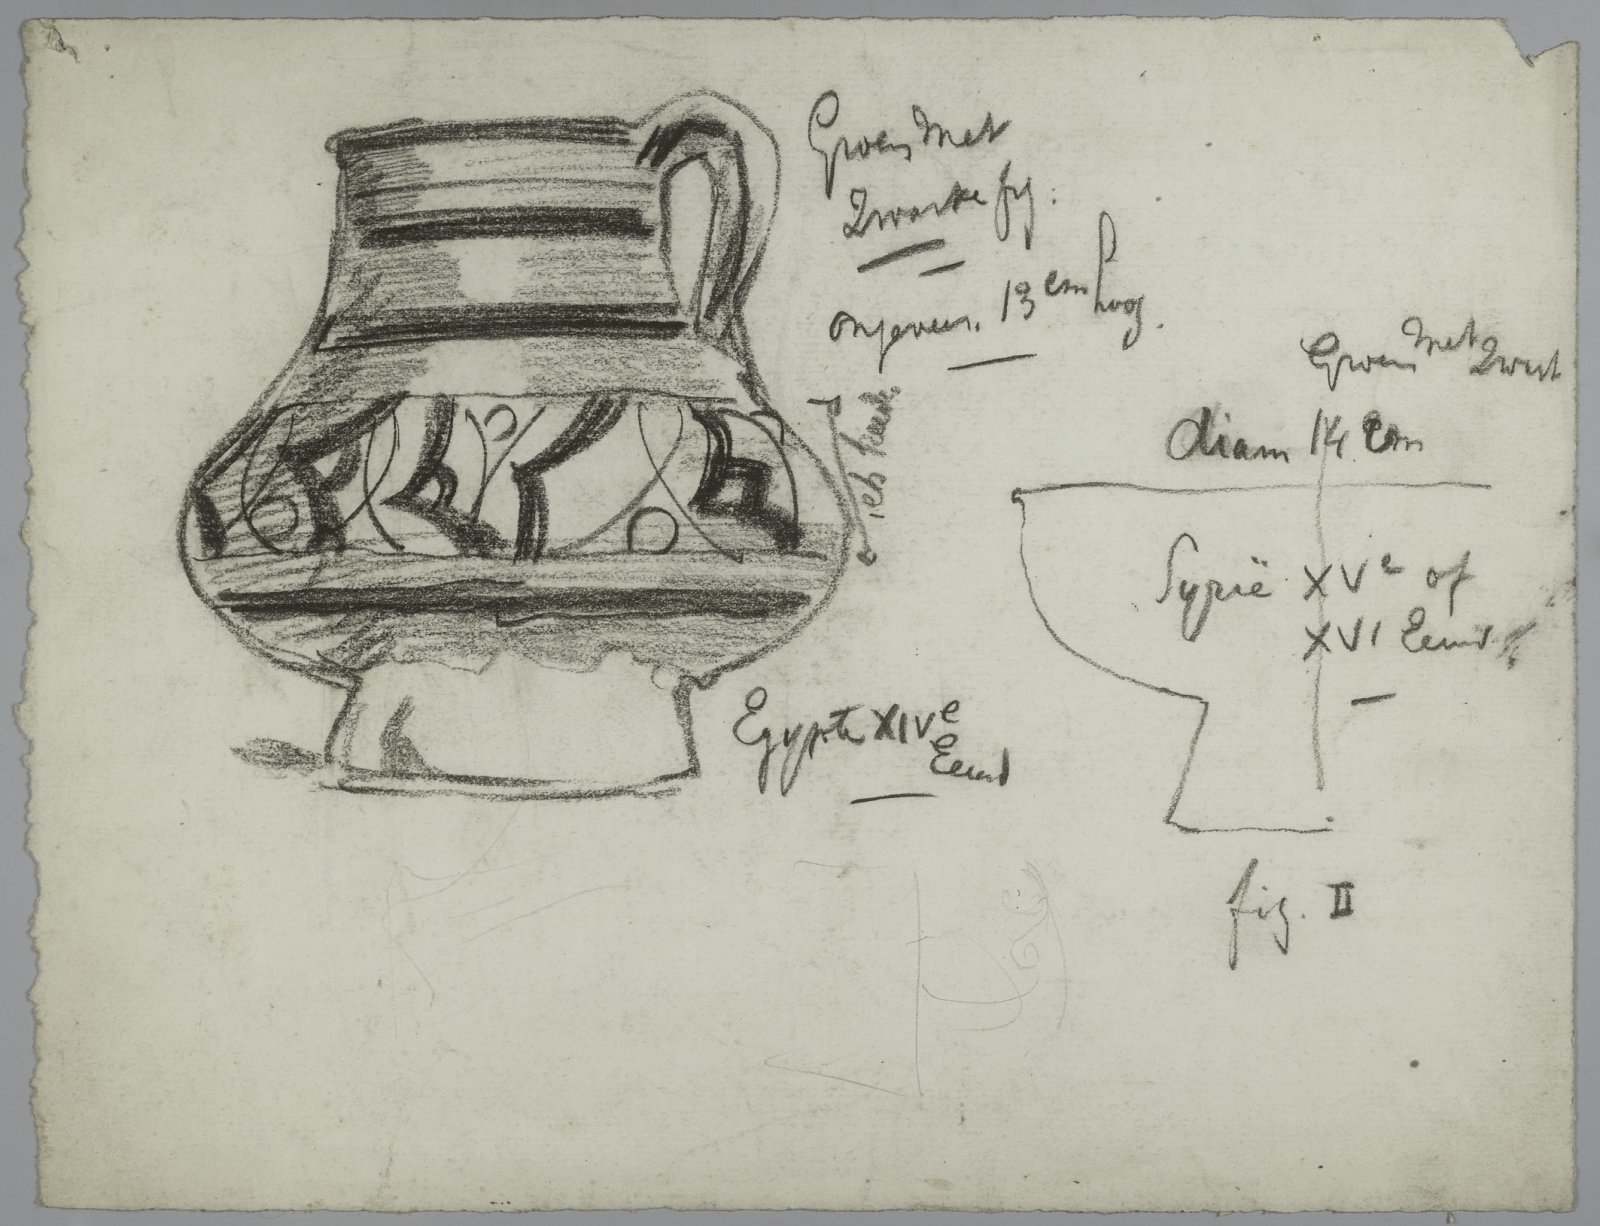 Groen met
Zwarte fig.
ongeveer. 13 cm hoog.
Egypte XIVe
Eeuw
Groen met Zwart
diam 14 cm
Syrië XVe of
XVI Eeuw
fig. II